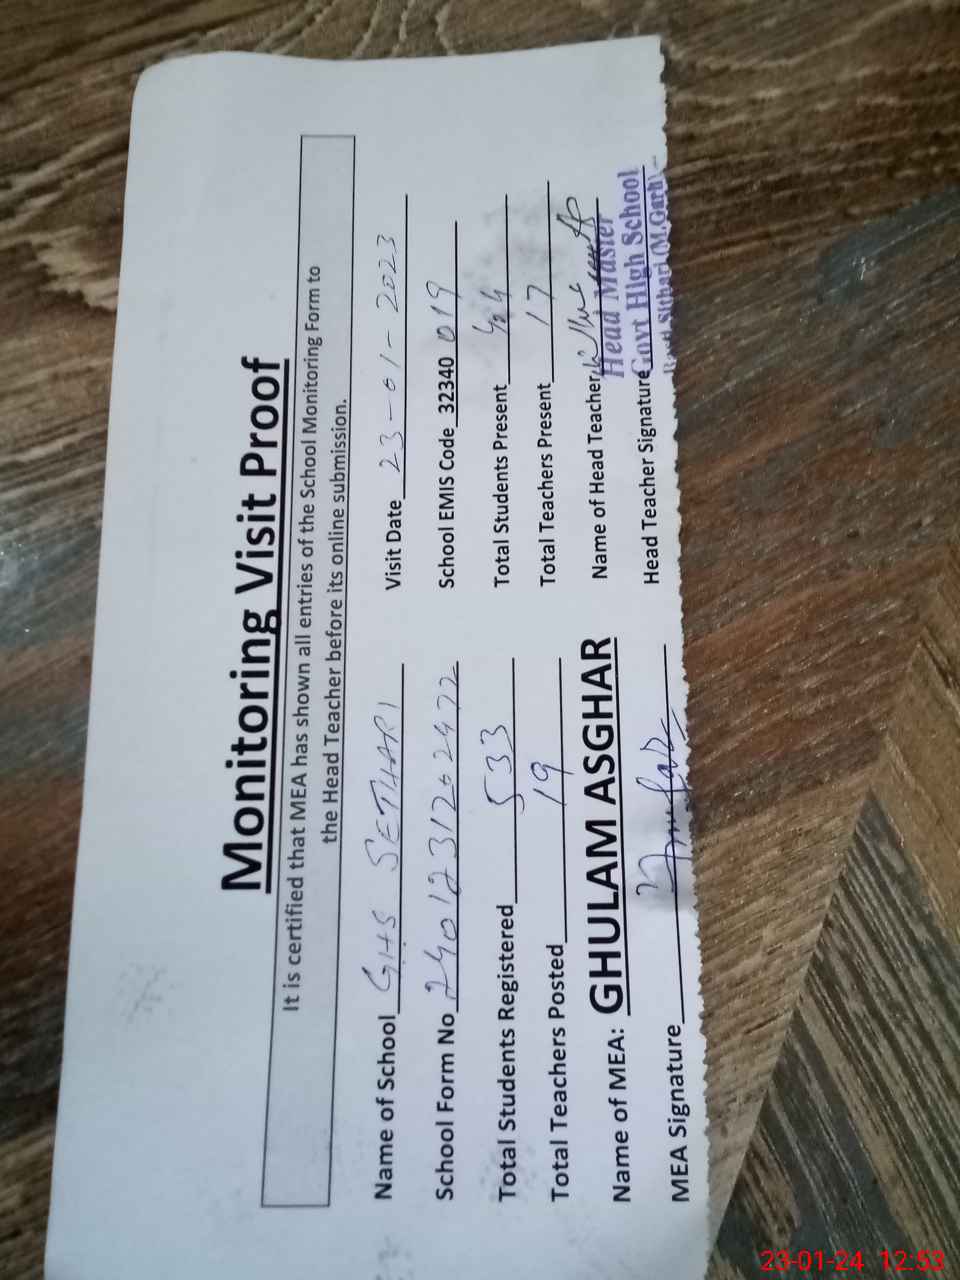 Monitoring Visit Proof
It is certified that MEA has shown all entries of the School Monitoring Form to
the Head Teacher before its online submission.
Name of School GHS SETHARI Visit Date 23-01-2023
School Form No 2401231202472 School EMIS Code 32340 019
Total Students Registered 533 Total Students Present
Total Teachers Posted 19 Total Teachers Present 17
Name of MEA: GHULAM ASGHAR Name of Head Teacher
Head Master
MEA Signature Head Teacher Signature
Govt High School
(M.Garh)
23-01-24 12:53